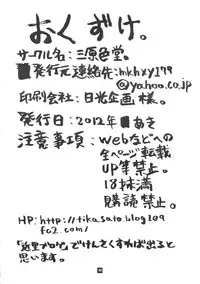 おくずけ。
サークル名：三原色堂。
発行元連絡先：mkhxy179
@yahoo.co.jp
印刷会社：日光企画様。
発行日：2012年 あき
注意事項：webなどへの
全ページ転載
UP等禁止。
18才未満
購読禁止。
HP：http://tikasato.blog109
fc2.com/
でけんさくすれば出ると
思います。